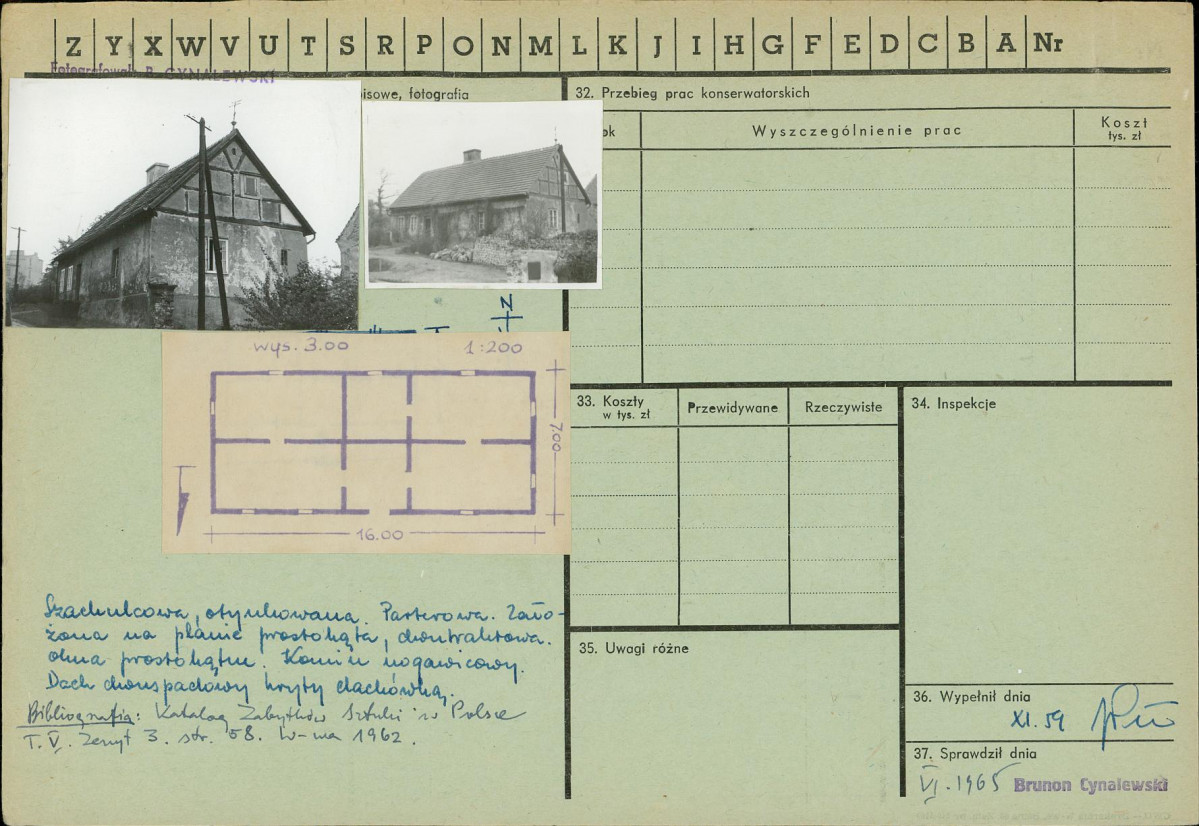 Z Y X W V U T S R P O N M L K J I H G F E D C B A Nr
Fotografował: B. CYNALEWSKI
isowe, fotografia
32. Przebieg prac konserwatorskich
ok
Wyszczególnienie prac
Koszt
tys. zł
N
wys. 3.00
1:200
7.00
16.00
33. Koszty
w tys. zł
Przewidywane
Rzeczywiste
34. Inspekcje
Szachulcowa, otynkowana. Parterowa. Zało-
żona na planie prostokąta, dwutraktowa.
Okna prostokątne. Komin nogawicowy.
Dach dwuspadowy kryty dachówką.
Bibliografia: Katalog Zabytków Sztuki w Polsce
T. V. Zeszyt 3. str. 58. W-wa 1962.
35. Uwagi różne
36. Wypełnił dnia
XI. 59
37. Sprawdził dnia
VI. 1965 Brunon Cynalewski